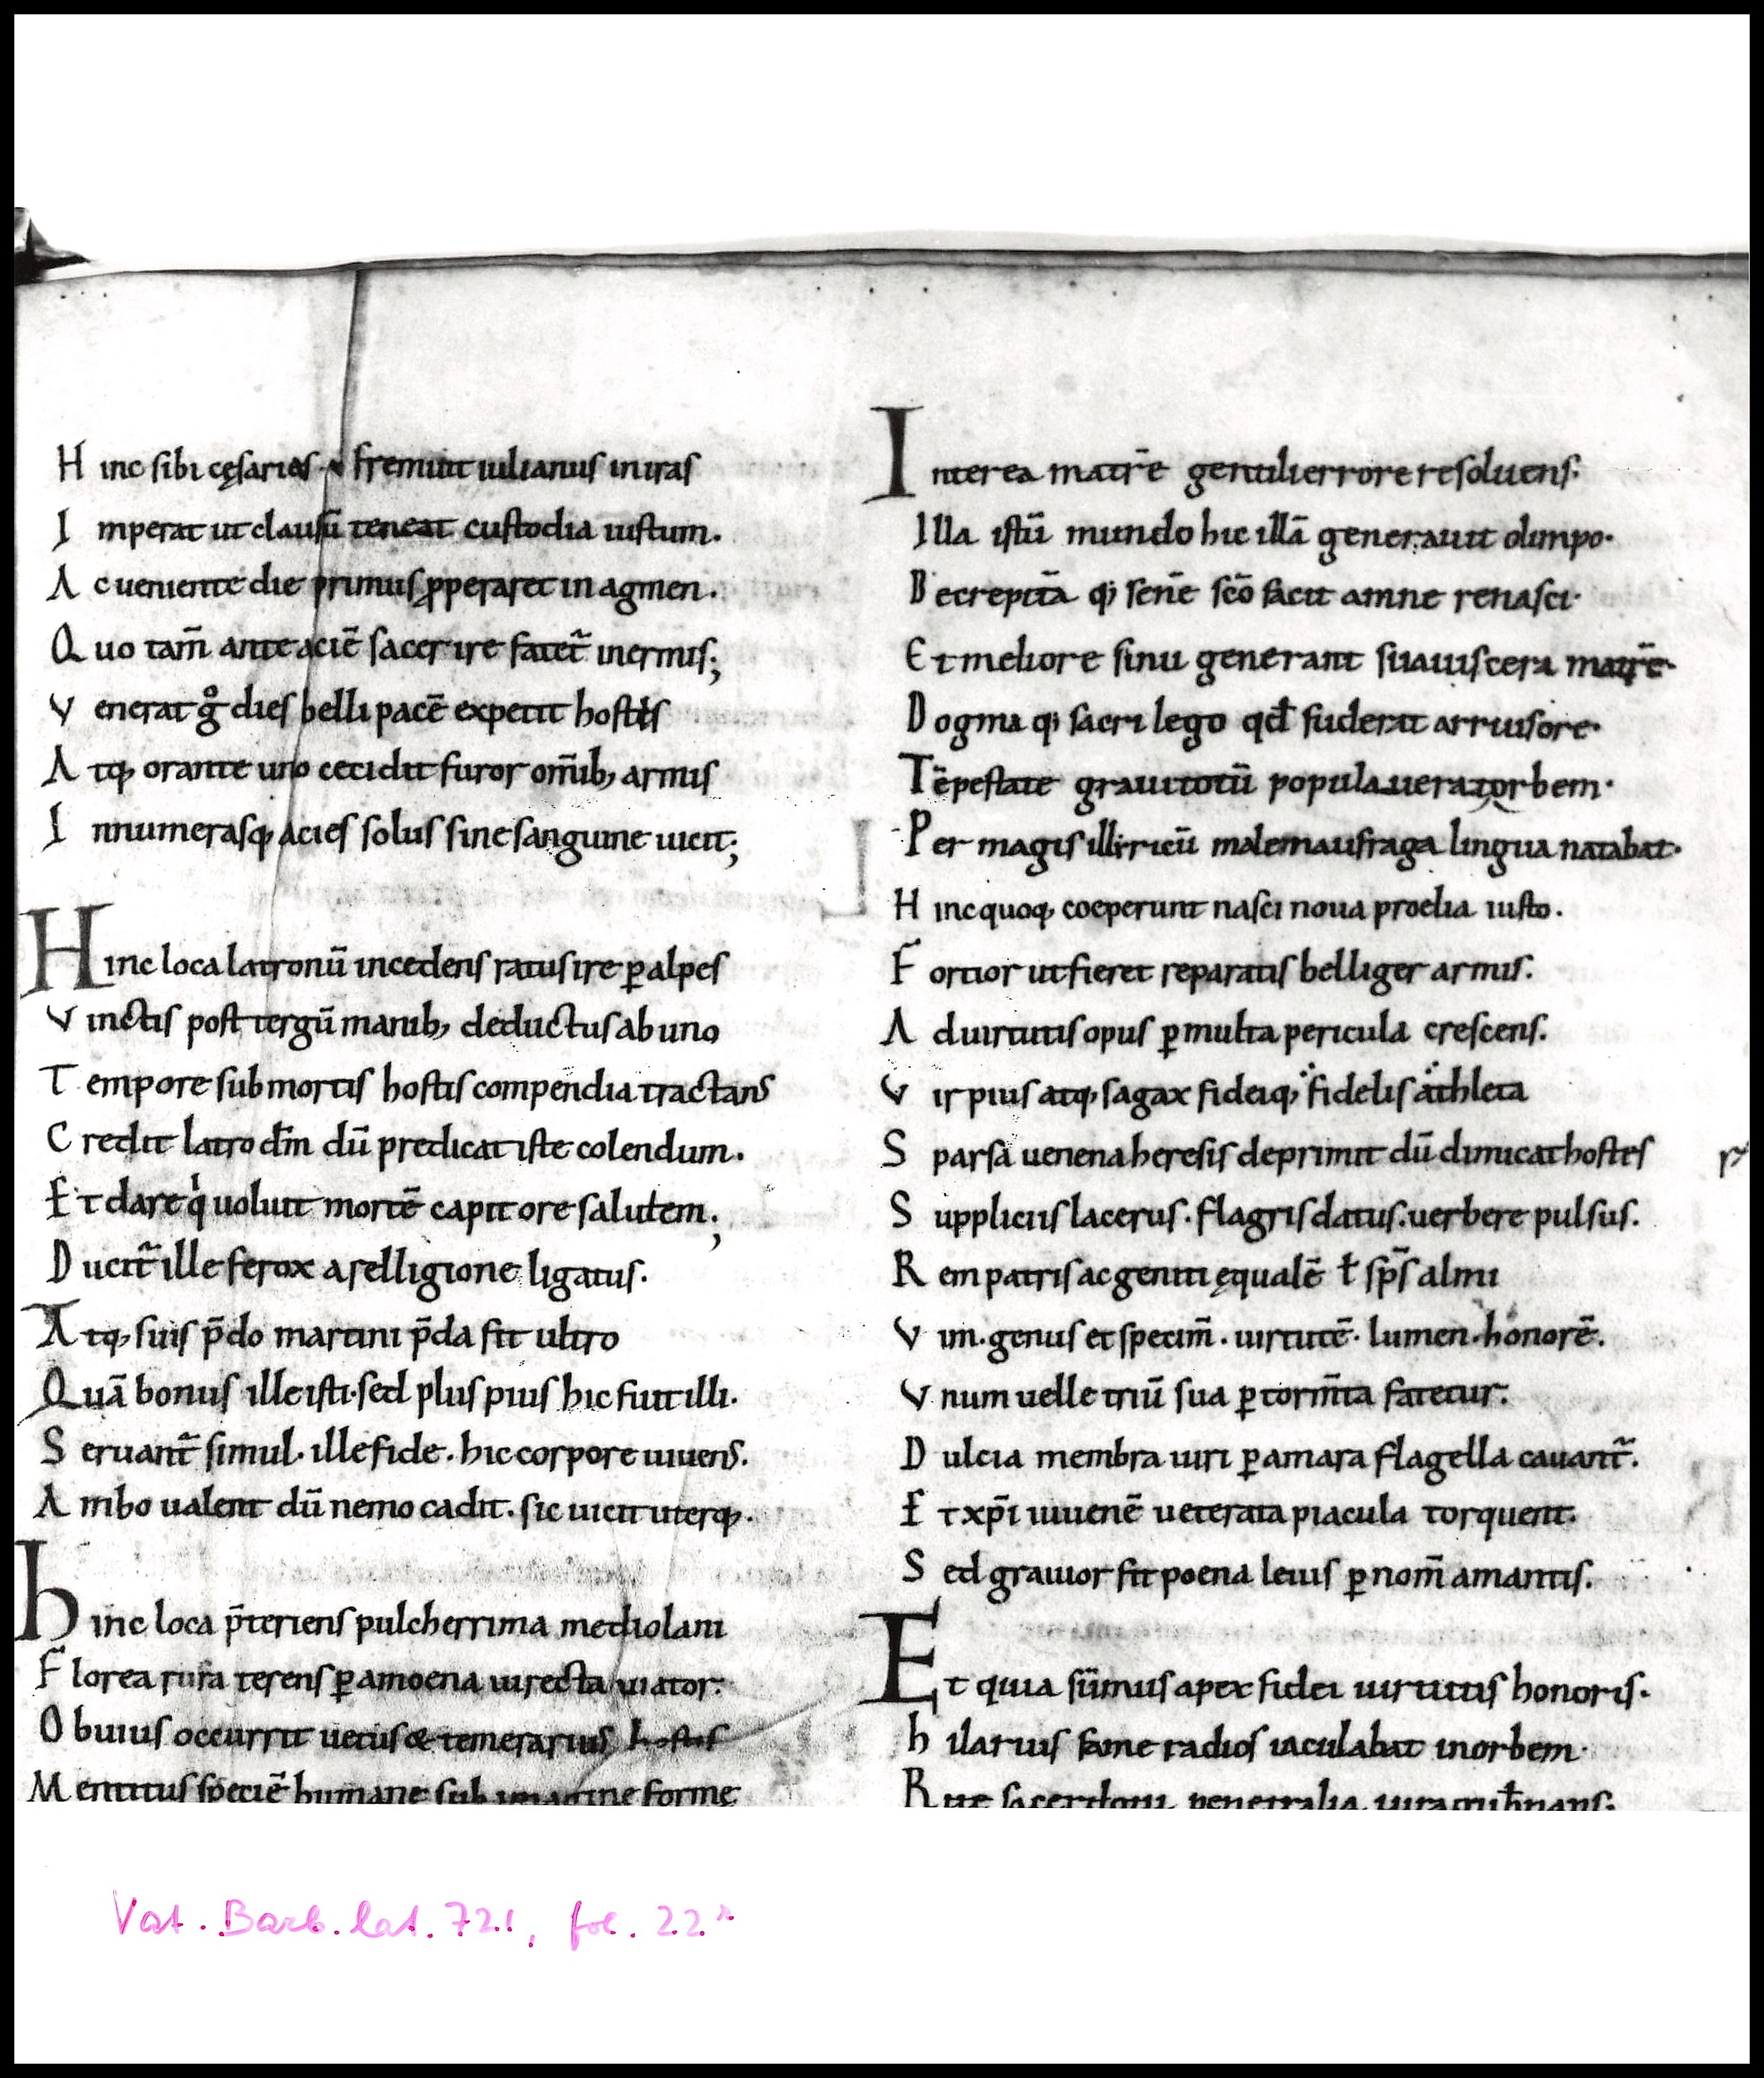 Hinc sibi cęsaries fremuit iulianus in iras
Imperat ut clausū teneat custodia iustum.
Ac ueniente die primus ꝓperaret in agmen.
Quo tam̄ ante aciē sacer ire fatet᷑ inermis;
Venerat gͦ dies belli pacē expetit hostis
Atq; orante uno cecidit furor om̄ib; armis
Innumerasq; acies solus sine sanguine uicit;
Hinc loca latronū incedens ratus ire ꝑ alpes
Vinctis post tergū manib; deductus ab uno
Tempore sub mortis hostis compendia tractans
Credit latro dm̄ dū predicat iste colendum.
Et dare qͥ uoluit mortē capit ore salutem;
Ducit᷑ ille ferox a relligione ligatus.
Atq; suis p̄do martini p̄da fit ultro
Quā bonus ille isti. sed plus pius hic fuit illi.
Seruant᷑ simul. ille fide. hic corpore uiuens.
Ambo ualent dū nemo cadit. sic uicit uterq;.
hinc loca p̄teriens pulcherrima mediolani
Florea rura terens ꝑ amoena uirecta uiator.
Obuius occurrit uetus & temerarius hostis
Mentitus speciē humane sub imagine forme
Interea matrē gentili errore resoluens.
Illa istū mundo hic illā generauit olimpo.
Decrepitā q; senē scō facit amne renasci.
Et meliore sinu generant sua uiscera matrē.
Dogma q; sacrilego qđ fuderat arrius ore.
Tēpestate graui totū populauerat orbem.
Per magis illirricū male naufraga lingua natabat.
Hinc quoq; coeperunt nasci noua proelia iusto.
Fortior ut fieret reparatis belliger armis.
Ad uirtutis opus ꝑ multa pericula crescens.
Vir pius atq; sagax fideiq; fidelis athleta
Sparsa uenena heresis deprimit dū dimicat hostes
Suppliciis lacerus. flagris datus. uerbere pulsus.
Rem patris ac geniti ęqualē ł sp̄s almi
Vim. genus et specim̄. uirtutē. lumen. honorē.
Vnum uelle triū sua ꝑ torm̄ta fatetur.
Dulcia membra uiri ꝑ amara flagella cauant᷑.
Et xp̄i iuuenē ueterata piacula torquent.
Sed grauior fit poena leuis ꝑ nom̄ amantis.
Et quia sūmus apex fidei uirtutis honoris.
hilarius fame radios iaculabat in orbem.
Rite sacerdotii penetralia iura gub̄nans.
Vat. Barb. lat. 721, fol. 22ʳ